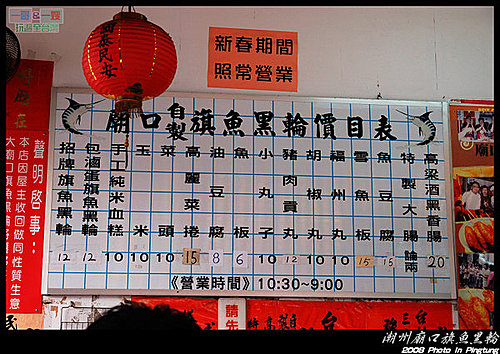 一哥&一嫂
玩遍全台灣
國泰民安
新春期間
照常營業
廟口自製旗魚黑輪價目表
招牌旗魚黑輪 12
包滷蛋旗魚黑輪 12
手工純米血糕 10
玉米 10
菜頭 10
高麗菜捲 15
油豆腐 8
魚板 6
小丸子 10
豬肉貢丸 12
胡椒丸 10
福州丸 10
雪魚板 15
魚豆腐 15
特製大腸 兩
高梁酒黑香腸 20
《營業時間》10:30~9:00
聲明啓事:
本店因屋主收回做同性質生意
大廟口旗魚黑輪
請先
潮州廟口旗魚黑輪
2008 Photo In Pingtung